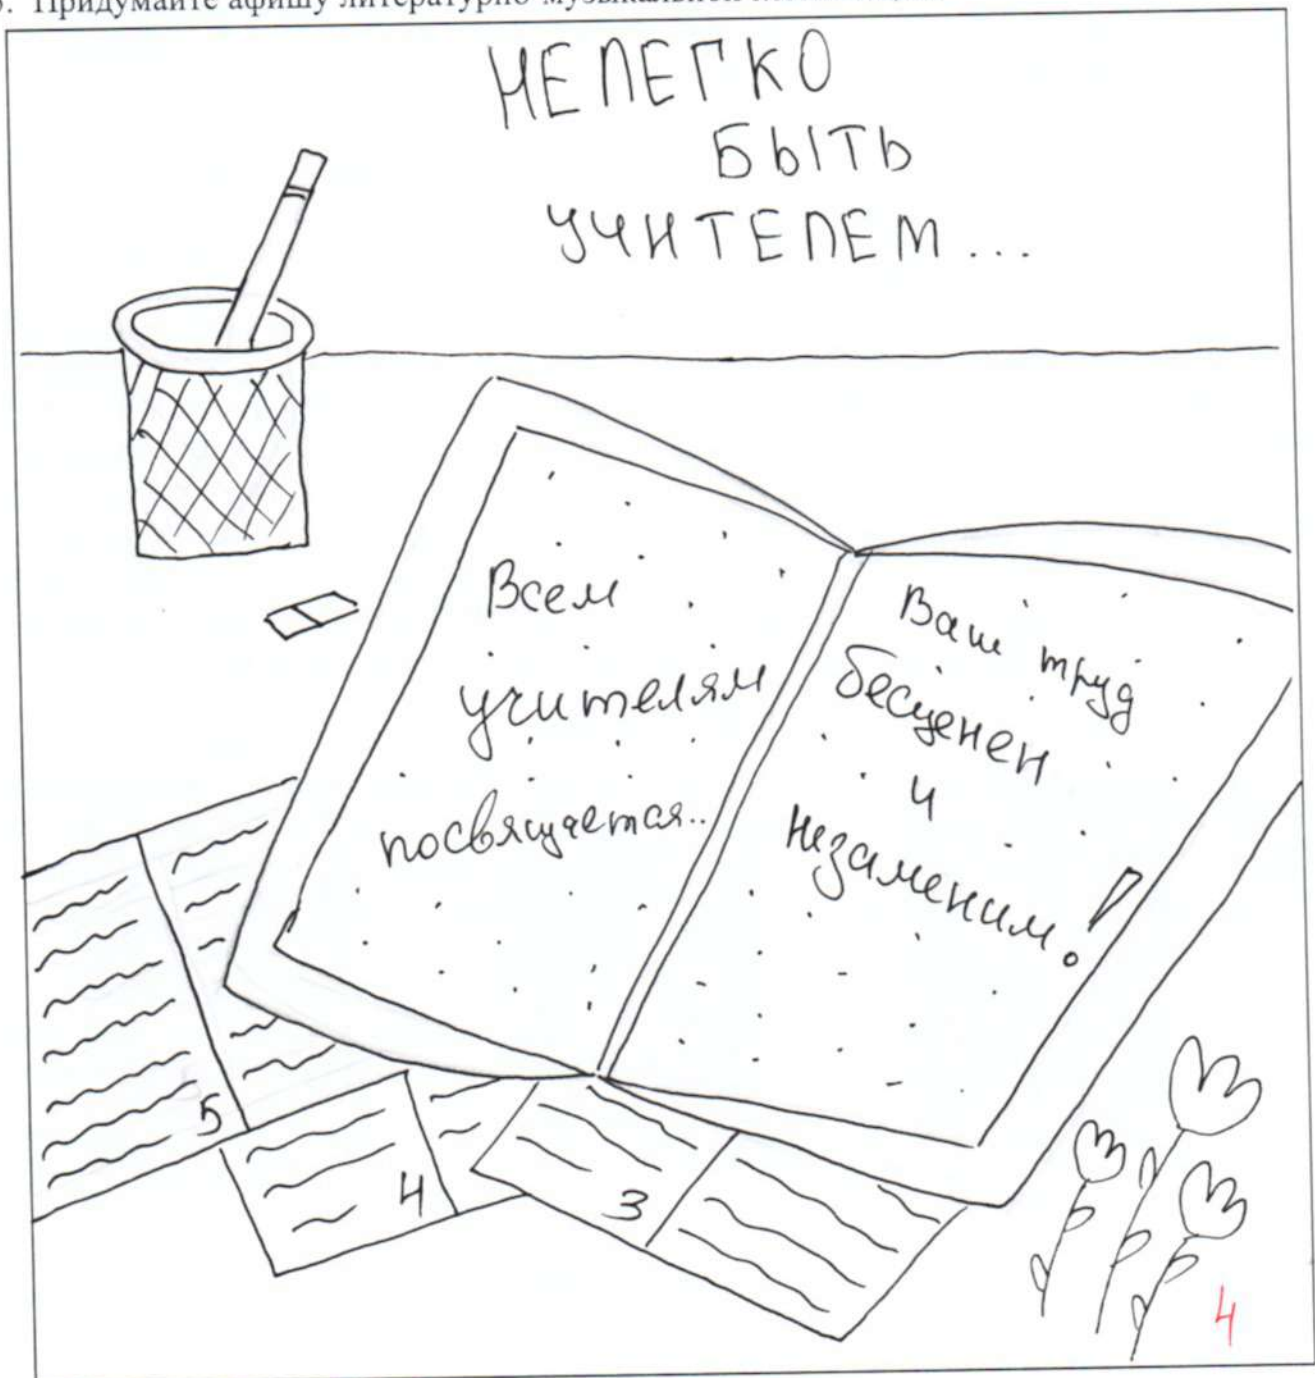 Придумайте афишу литературно-музыкальной
НЕЛЕГКО
БЫТЬ
УЧИТЕЛЕМ...
Всем
учителям
посвящается..
Ваш труд
бесценен
и
незаменим!
5
4
3
4